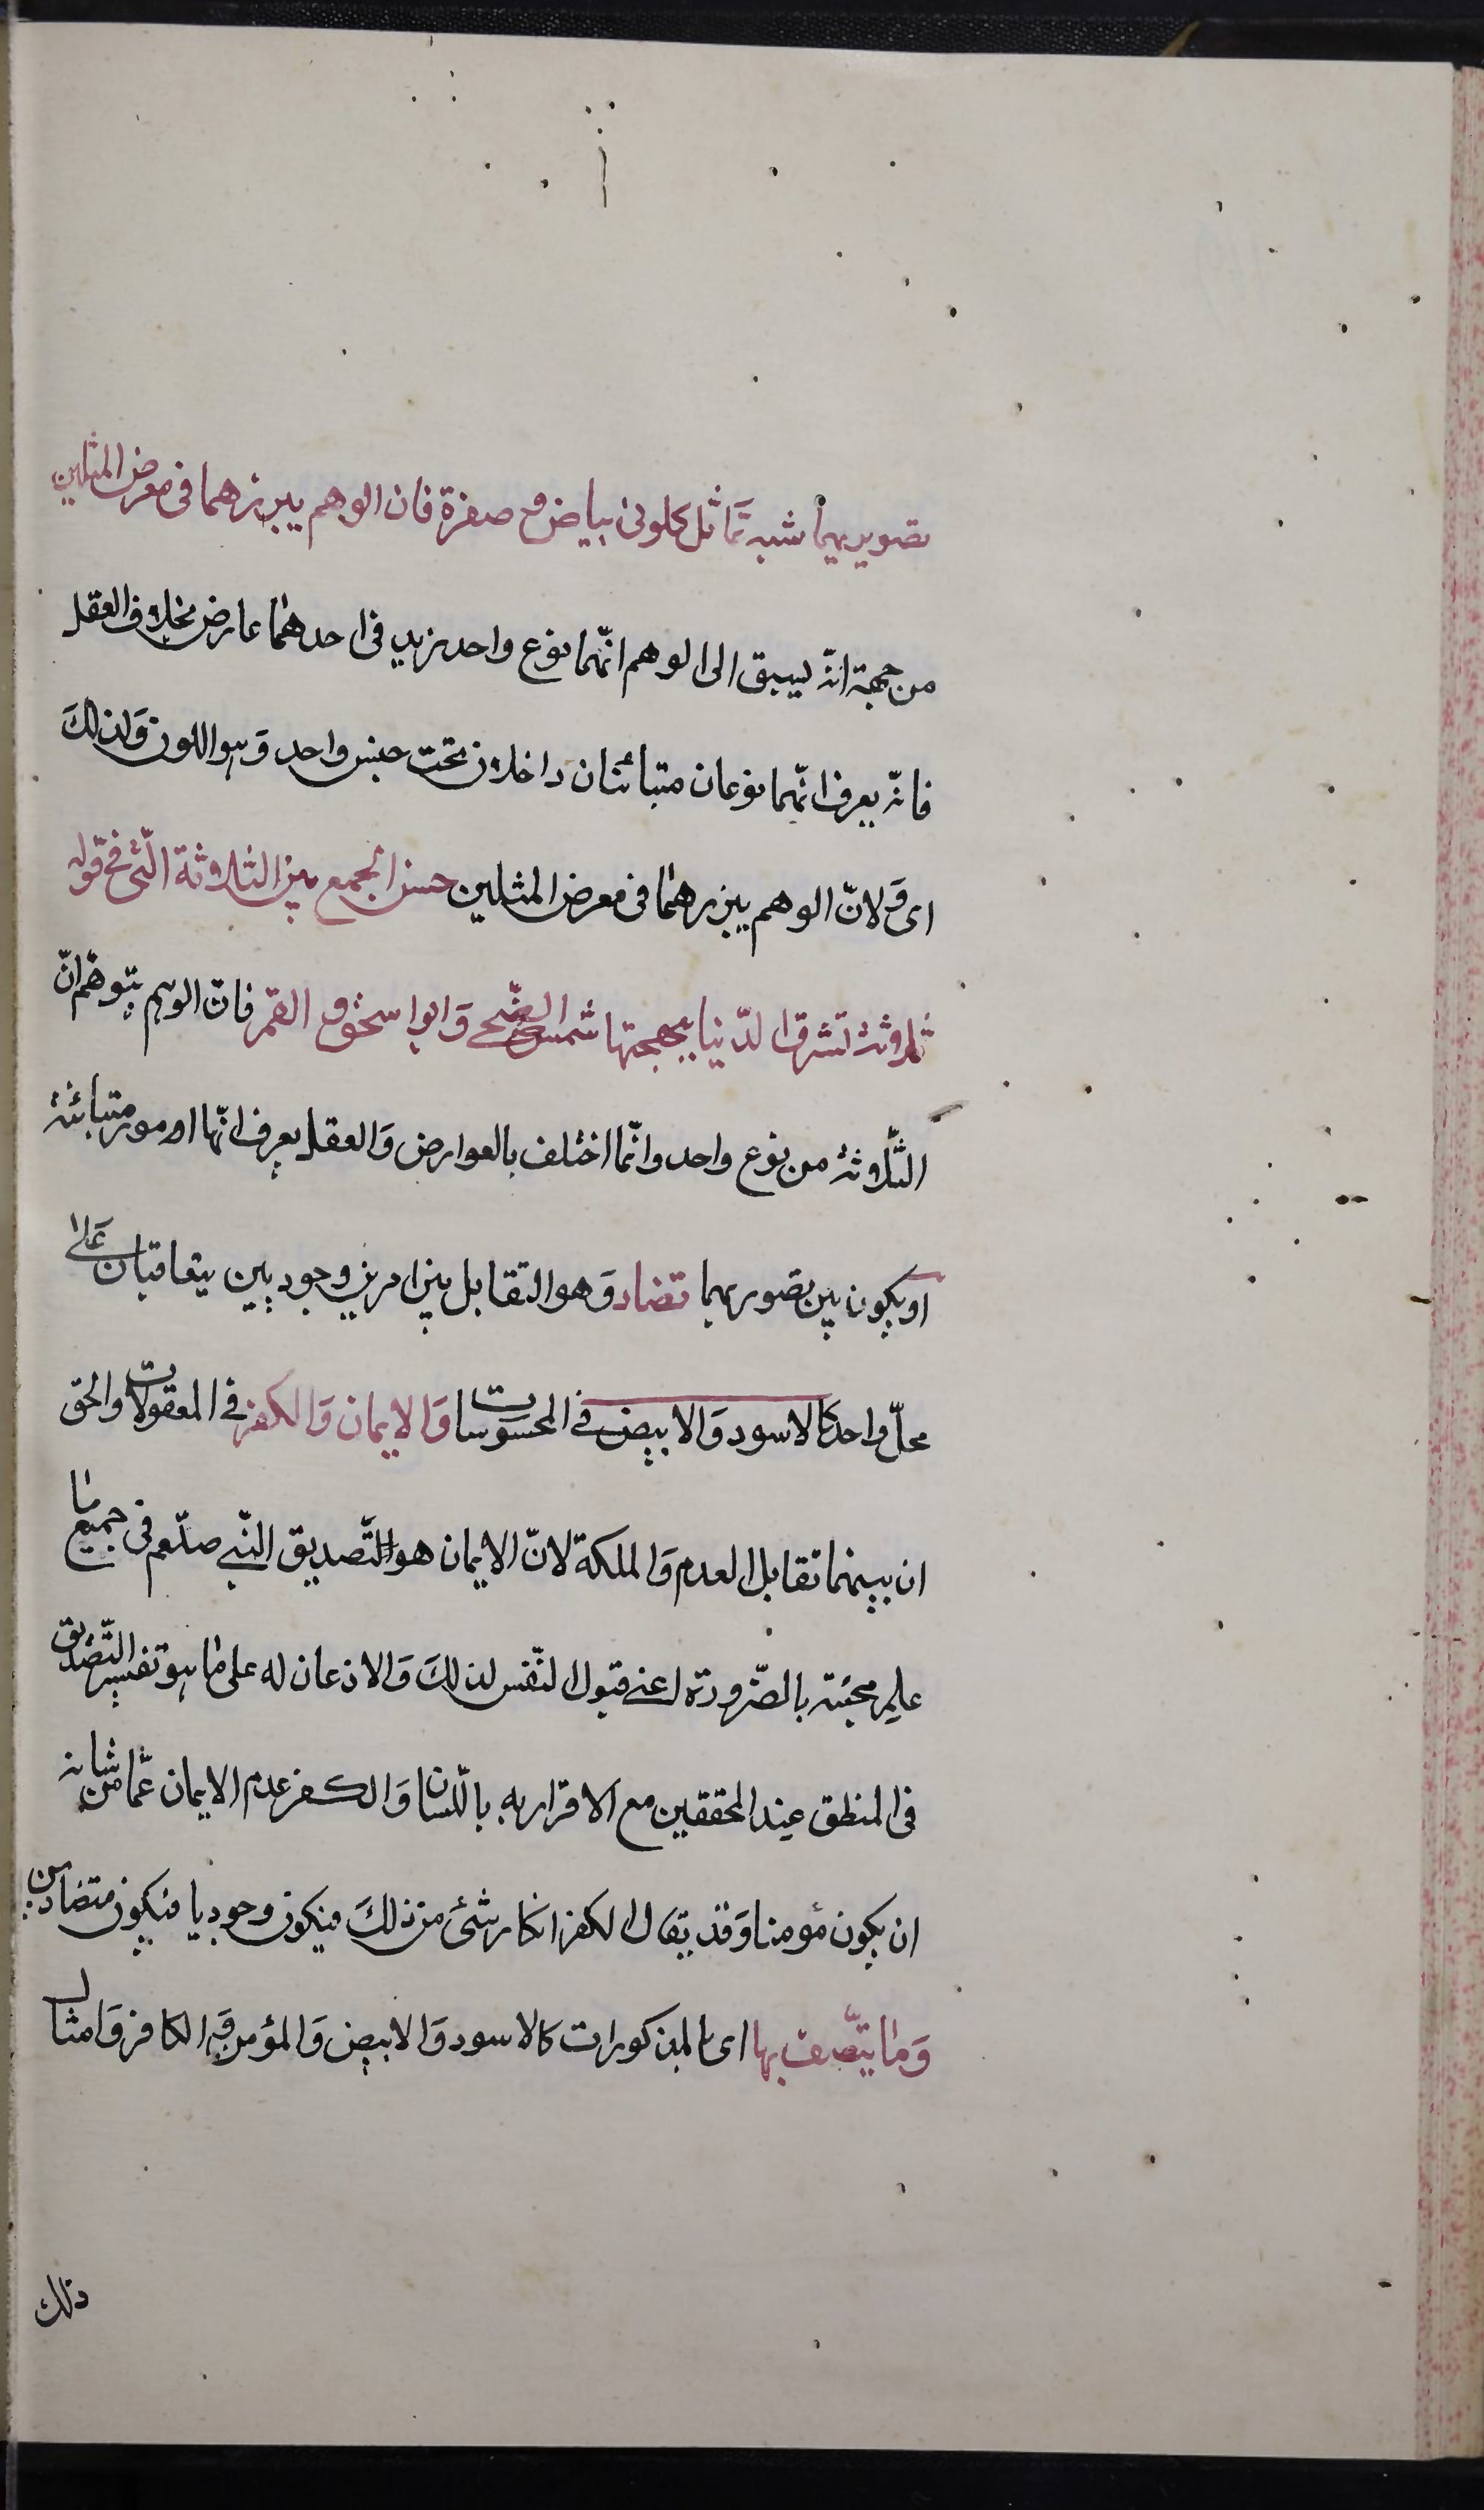 تصويريهما شبه تماثل كلونى بياض و صفرة فان الوهم يبرزهما فى معرض المثلين
من جهة انه يسبق الى الوهم انّهما نوع واحد زيد فى احدهما عارض بخلاف العقل
فانّه يعرف انّهما نوعان متبائنان داخلان تحت جنس واحد وَهو اللون وَلذلكَ
اى وَ لانّ الوهم يبرزهما فى معرض المثلين حسن الجمع بين الثلاثة الّتى فى قوله
ثلاثة تشرق الدّنيا ببهجتها شمس الضّحى وَابو اسحق و القمر فانّ الوهم يتوهّم انّ
الثّلاثة من نوع واحد وانّما اختلف بالعوارض وَالعقل يعرف انّها امور متبائنة
او يكون بين تصوريهما تضاد وَهو التقابل بين امرين وجوديين يتعاقبان عَلى
محلّ واحد كالاسود وَالابيض فى المحسوسات وَالايمان وَالكفر فى المعقولات والحق
ان بينهما تقابل العدم وَالملكة لانّ الايمان هو التّصديق النّبى صلّعم فى جميع ما
علم مجيئه بالضّرورة اعنى قبول النّفس لذلكَ وَالاذعان له على ما هو تفسير التّصديق
فى المنطق عند المحققين مع الاقرار به باللّسان وَالكفر عدم الايمان عمّا من شانه
ان يكون مؤمنا وَقد يقال الكفر انكار شئ من ذلكَ فيكون وجوديا فيكون متضادين
وَما يتّصف بها اى بالمذكورات كالاسود وَالابيض وَالمؤمن وَالكافر وَامثال
ذلك